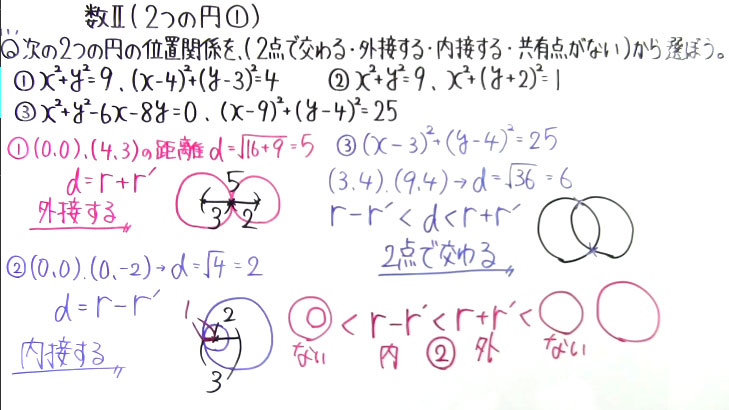 数Ⅱ(2つの円①)
Q次の2つの円の位置関係を、(2点で交わる・外接する・内接する・共有点がない)から選ぼう。
① x²+y²=9、(x-4)²+(y-3)²=4 ② x²+y²=9、x²+(y+2)²=1
③ x²+y²-6x-8y=0、(x-9)²+(y-4)²=25
①(0,0)、(4,3)の距離 d=√16+9=5
d=r+r′
外接する
5
3 2
②(0,0).(0,-2)→d=√4=2
d=r-r′
内接する
1 2
3
③(x-3)²+(y-4)²=25
(3.4).(9.4)→d=√36=6
r-r′<d<r+r′
2点で交わる
<r-r′<r+r′<
ない 内 ② 外 ない